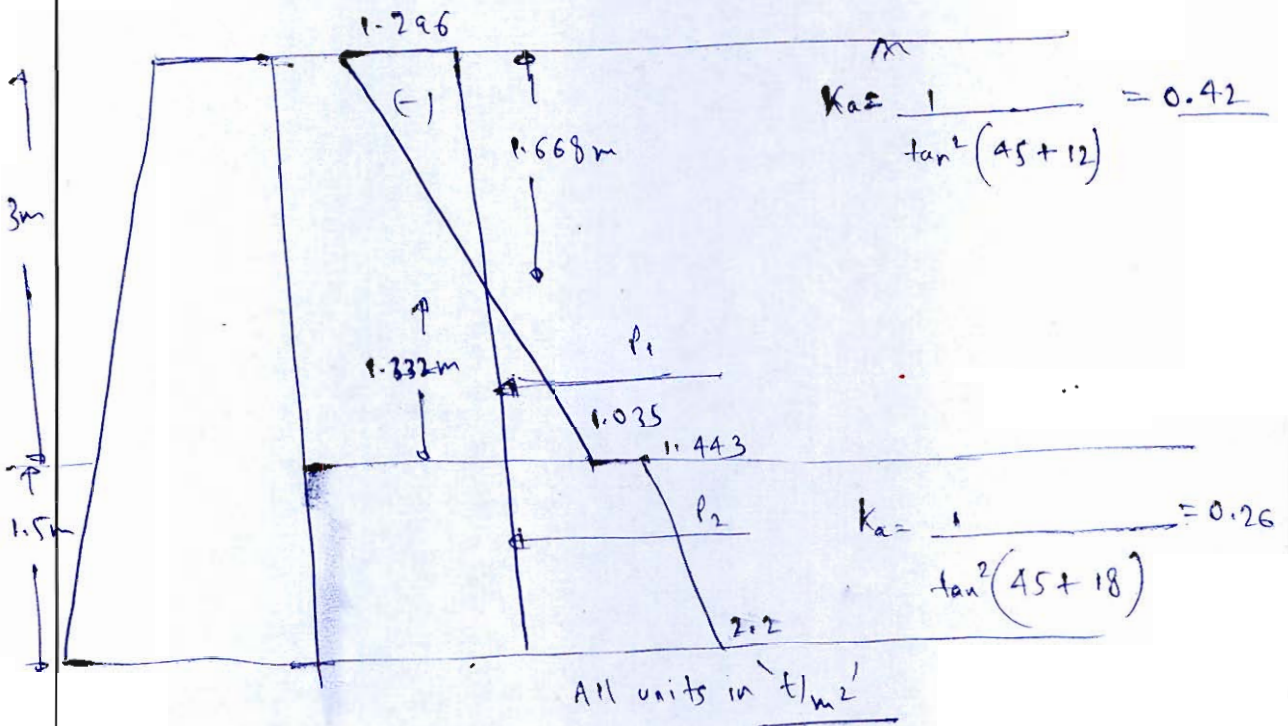 1.296
Ka= 1 / tan² (45 + 12) = 0.42
(-)
1.668m
3m
1.332m
P1
1.035
1.443
1.5m
P2
Ka= 1 / tan² (45 + 18) = 0.26
2.2
All units in 't/m2'